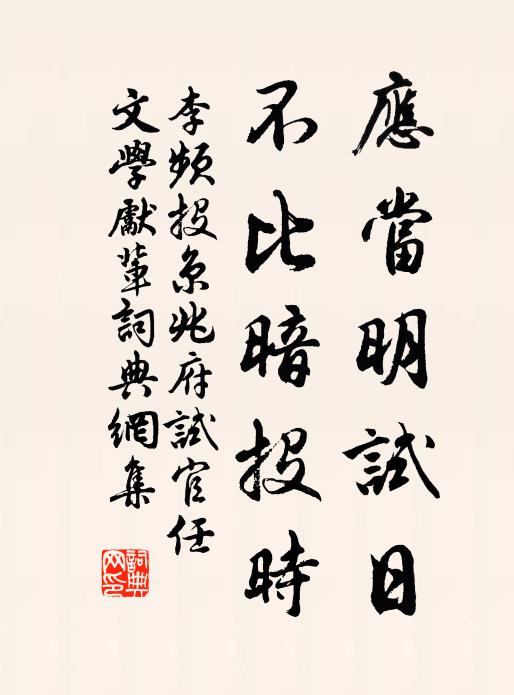 應當明試日
不比暗投時
李頻投京兆府試官任
文學獻輩詞典網集
詞典網印